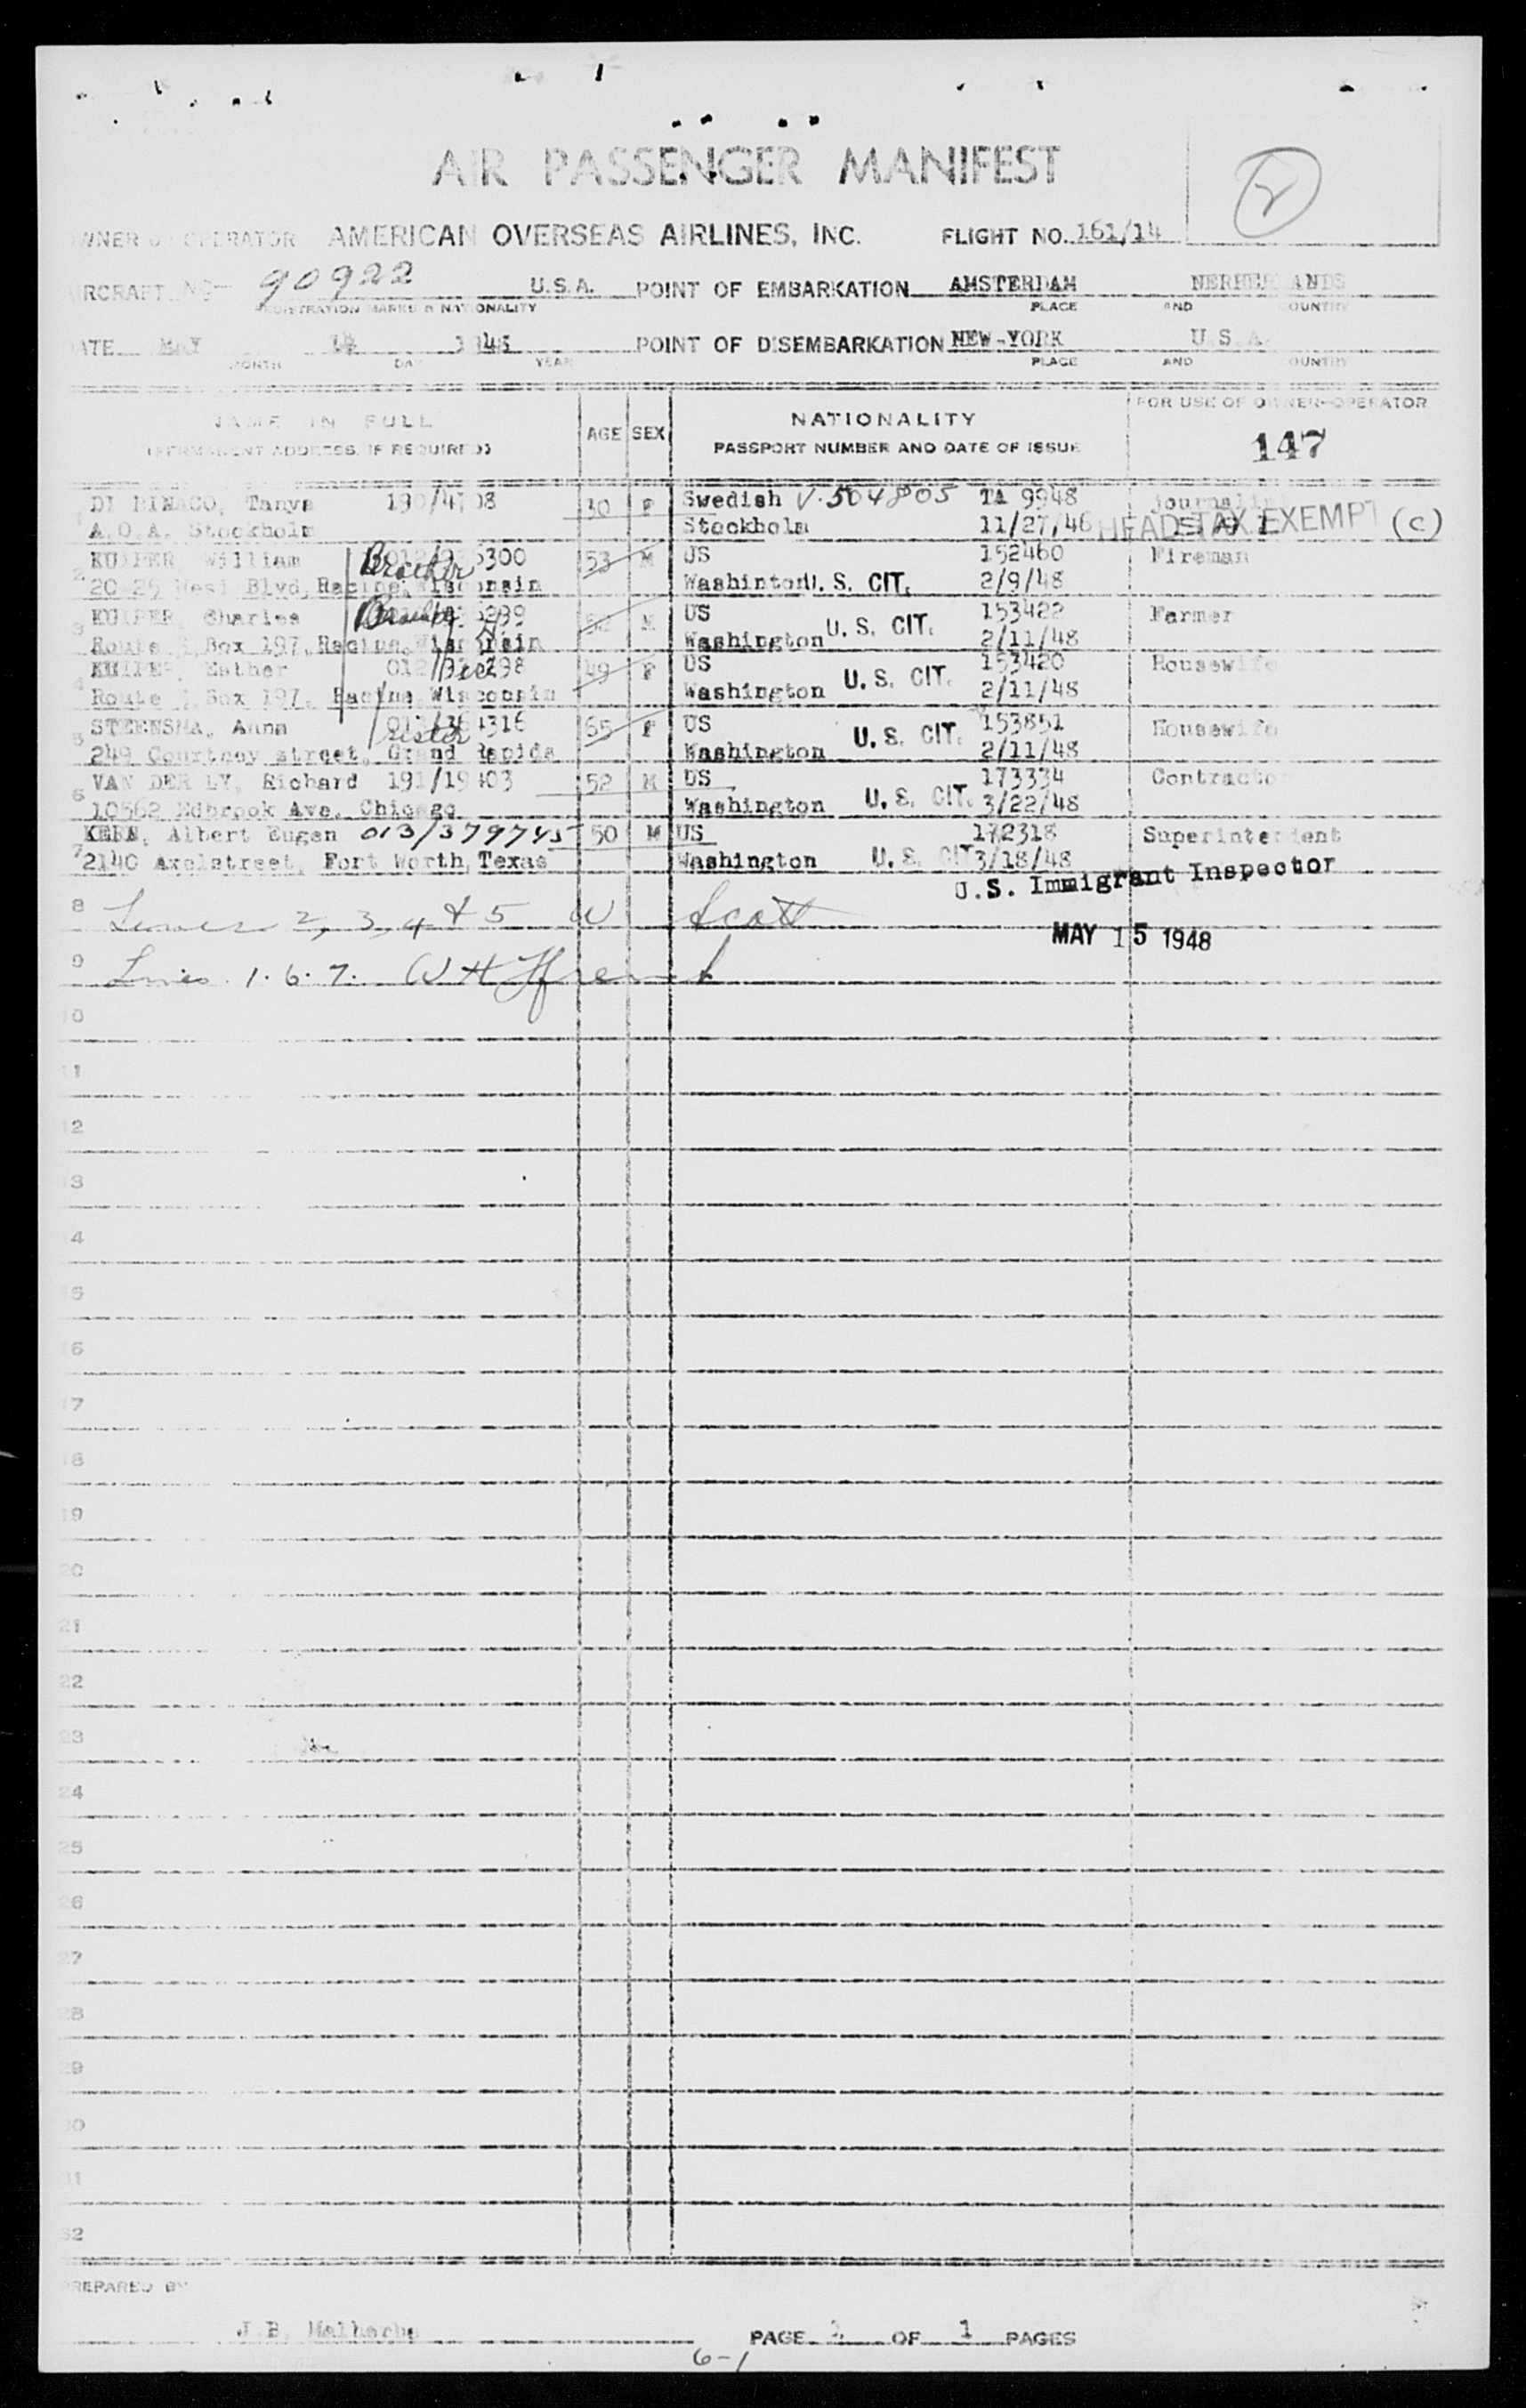 AIR PASSENGER MANIFEST
2
OWNER OR OPERATOR AMERICAN OVERSEAS AIRLINES, INC. FLIGHT NO. 161/14
AIRCRAFT NC- 90922 U.S.A. POINT OF EMBARKATION AMSTERDAM NERHERLANDS
REGISTRATION MARKS & NATIONALITY PLACE AND COUNTRY
DATE MAY 14 1948 POINT OF DISEMBARKATION NEW-YORK U.S.A.
MONTH DAY YEAR PLACE AND COUNTRY
NAME IN FULL AGE SEX NATIONALITY FOR USE OF OWNER-OPERATOR
(PERMANENT ADDRESS, IF REQUIRED) PASSPORT NUMBER AND DATE OF ISSUE 147
1 Tanya 30 F Swedish V-504805 TA 9948 Journalist
A.O.A. Stockholm Stockholm 11/27/46 HEAD TAX EXEMPT (C)
2 KUIPER William Brother 53 M US 152460 Fireman
Blvd, Racine, Wisconsin Washinton U. S. CIT. 2/9/48
3 KUIPER, Charles M US 153422 Farmer
Route 1, Box 197, Racine, Wisconsin Washington U. S. CIT. 2/11/48
4 KUIPER, Esther 49 F US 153420 Housewife
Route 1, Box 197, Racine, Wisconsin Washington U. S. CIT. 2/11/48
5 STEENSMA, Anna Sister 65 F US 153851 Housewife
249 Courtney street, Grand Rapids Washington U. S. CIT. 2/11/48
6 VAN DER LY, Richard 52 M US 173334 Contractor
10562 Edbrook Ave. Chicago Washington U. S. CIT. 3/22/48
7 KERN, Albert Eugen 013/379745 50 M US 172318 Superintendent
2140 Axelstreet, Fort Worth, Texas Washington U. S. CIT 3/18/48
U.S. Immigrant Inspector
8 Lines 2, 3, 4 & 5 W Scott
MAY 15 1948
9 Lines 1. 6. 7. W H
10
11
12
13
14
15
16
17
18
19
20
21
22
23
24
25
26
27
28
29
30
31
32
PREPARED BY
J.B. Malherbe PAGE 1 OF 1 PAGES
6-1